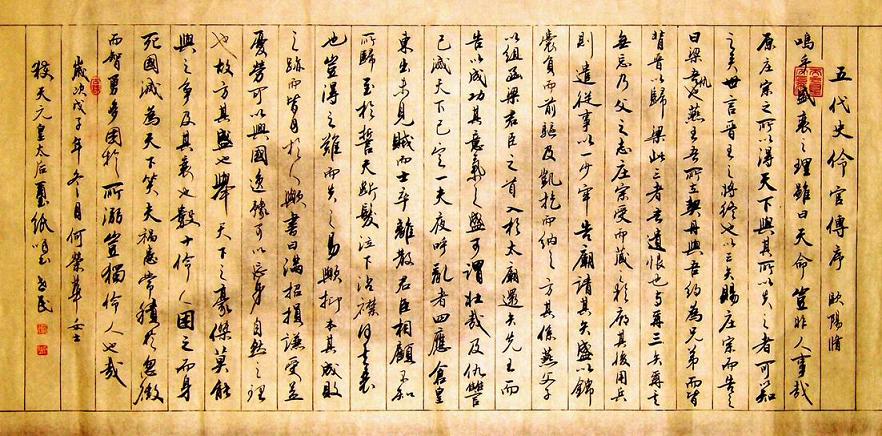 五代史伶官傳序 歐陽脩
嗚乎盛衰之理雖曰天命豈非人事哉
原庄宗之所以得天下與其所以失之者可以知
之矣世言晉王之將終也以三矢賜庄宗而告之
曰梁吾仇也燕王吾所立契丹與吾約為兄弟而皆
背晉以歸梁此三者吾遺恨也与爾三矢爾其
無忘乃父之志庄宗受而藏之於廟其後用兵
則遣從事以一少牢告廟請其矢盛以錦
囊負而前驅及凱旋而納之方其係燕父子
以組函梁君臣之首入於太廟還矢先王而
告以成功其意氣之盛可謂壯哉及仇讐
已滅天下已定一夫夜呼亂者四應倉皇
東出未見賊而士卒離散君臣相顧不知
所歸至於誓天斷髮泣下沾襟何其衰
也豈得之難而失之易歟抑本其成敗
之跡而皆自於人歟書曰滿招損謙受益
憂勞可以興國逸豫可以亡身自然之理
也故方其盛也舉天下之豪傑莫能
與之爭及其衰也數十伶人困之而身
死國滅為天下笑夫禍患常積於忽微
而智勇多困於所溺豈獨伶人也哉
歲次戊子年冬月何榮華女士
天元皇太后紙